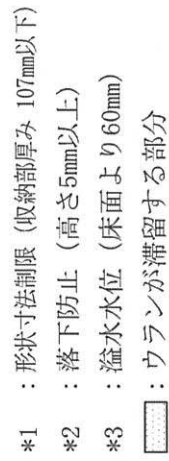 *1 ：形状寸法制限（収納部厚み 107mm以下）
*2 ：落下防止（高さ5mm以上）
*3 ：溢水水位（床面より60mm）
：ウランが滞留する部分